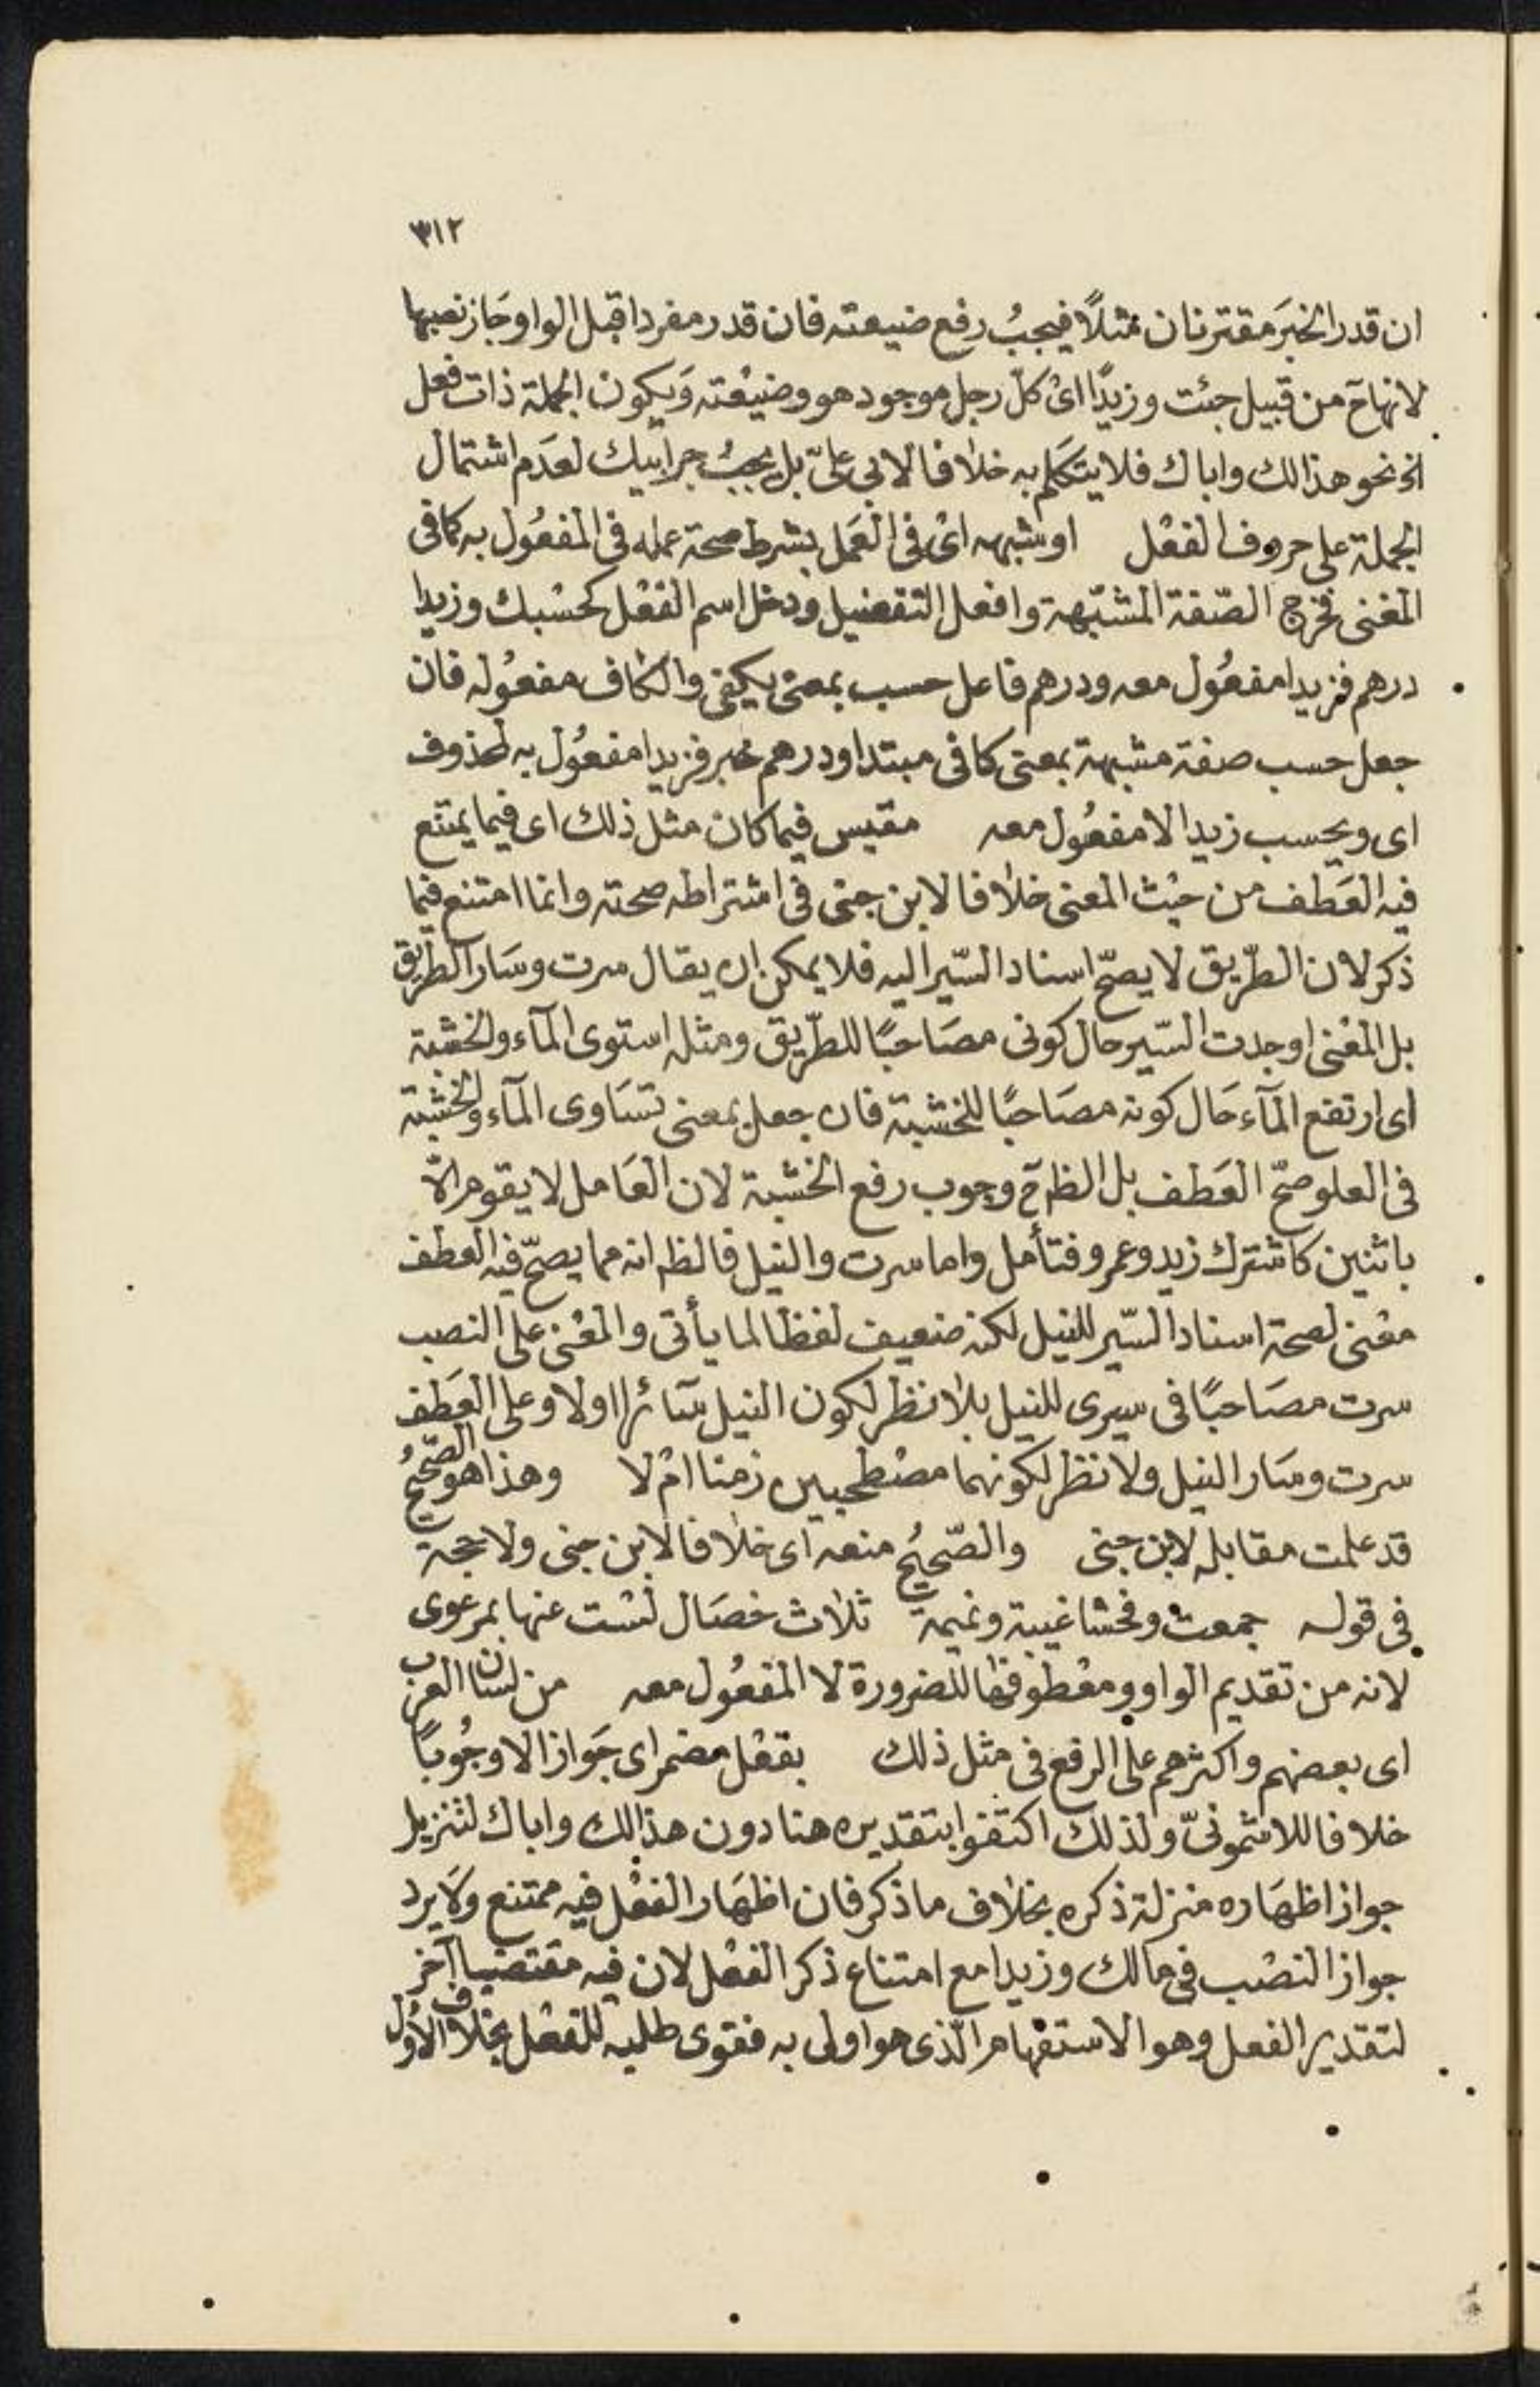 ٣١٢
ان قدر الخبرَ مقترنان مثلاً فيجبُ رفع ضيعته فان قدر مفردا قبل الواو جَاز نصبها
لانها ح من قبيل جئت وزيدًا اىْ كلّ رجل موجود هو وضيْعته وَيكون الجملة ذات فعل
الخ نحو هذا لك واباك فلا يتكلم به خلافا لابى علىّ بل يجبُ جر ابيك لعَدم اشتمال
الجملة على حروف الفعْل او شبهه اىْ فى العَمل بشرط صحة عمله فى المفعُول به كما فى
المغنى فخرج الصّفة المشبّهة وافعل التفضيل ودخل اسم الفعْل كحسْبك وزيدا
درهم فزيدا مفعُول معه ودرهم فاعل حسب بمعنى يكفى والكاف مفعُوله فان
جعل حسب صفة مشبهة بمعنى كافى مبتدا ودرهم خبر فزيدا مفعُول به لمحذوف
اى ويحسب زيدا لا مفعُول معه مقيس فيما كان مثل ذلك اى فيما يمتنع
فيه العَطف من حيْث المعنى خلافا لابن جنى فى اشتراطه صحته وانما امتنع فيما
ذكر لان الطّريق لا يصحّ اسناد السّير اليه فلا يمكن ان يقال سرت وسَار الطريق
بل المعْنى اوجدت السّير حال كونى مصَاحبًا للطّريق ومثله استوى المآء والخشبة
اى ارتفع المآء حَال كونه مصَاحبًا للخشبة فان جعل بمعنى تسَاوى المآء والخشبة
فى العلو صحّ العَطف بل الظ ح وجوب رفع الخشبة لان العَامل لا يقوم الّا
باثنين كاشترك زيد وعمرو فتأمل واما سرت والنيل فالظ انه مما يصحّ فيه العطف
معْنى لصحة اسناد السّير للنيل لكنه ضعيف لفظا لما يأتى والمعْنى على النصب
سرت مصَاحبًا فى سيرى للنيل بلا نظر لكون النيل سَآئرا او لا وعلى العَطف
سرت وسَار النيل ولا نظر لكونهما مصْطحبين زمنا امْ لا وهذا هو الصّحيحُ
قد علمت مقابله لابن جنى والصّحيحُ منعه اى خلافا لابن جنى ولا حجة
فى قوله جمعت وفحشا غيبة ونميمة ثلاث خصَال لسْت عنها بمرعوى
لانه من تقديم الواو ومعْطوفها للضرورة لا المفعُول معه من لسان العرب
اى بعضهم واكثرهم على الرفع فى مثل ذلك بفعْل مضمر اى جَوازا لا وجُوبًا
خلافا للاشمونىّ ولذلك اكتفوا بتقديره هنا دون هذا لك واباك لتنزيل
جواز اظهَاره منزلة ذكره بخلاف ما ذكر فان اظهَار الفعْل فيه ممتنع ولَا يرد
جواز النصْب فى مالك وزيدا مع امتناع ذكر الفعْل لان فيه مقتضيا آخر
لتقدير الفعل وهو الاستفهام الّذى هو اولى به فقوى طلبه للفعْل بخلاف الاول